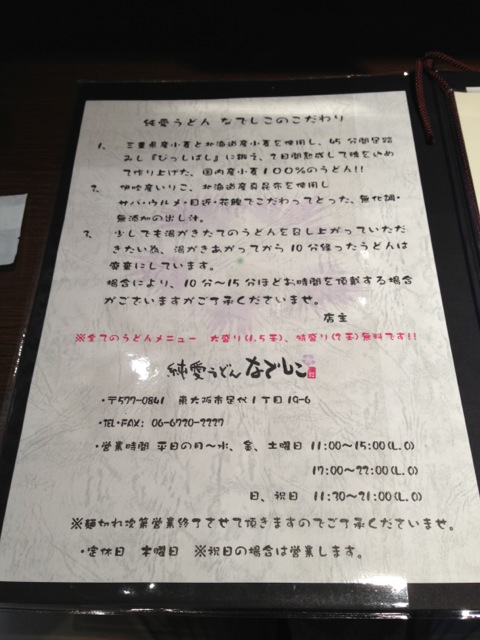 純愛うどん なでしこのこだわり
1、 三重県産小麦と北海道産小麦を使用し、45分間足踏
みし『びっしばし』に鍛え、7日間熟成して腰を込め
て作り上げた、国内産小麦100%のうどん!!
2、 伊吹産いりこ、北海道産真昆布を使用し
サバ・ウルメ・目近・花鰹でこだわってとった、無化調・
無添加の出し汁。
3、 少しでも湯がきたてのうどんを召し上がっていただ
きたい為、湯がきあがってから10分経ったうどんは
廃棄にしています。
場合により、10分～15分ほどお時間を頂戴する場合
がございますがご了承くださいませ。
店主
※全てのうどんメニュー 大盛り(1.5玉)、特盛り(2玉)無料です!!
純愛うどん なでしこ
・〒577-0841 東大阪市足代1丁目19-6
・TEL・FAX: 06-6720-2227
・営業時間 平日の月～水、金、土曜日 11:00～15:00(L.O)
17:00～22:00(L.O)
日、祝日 11:30～21:00(L.O)
※麺切れ次第営業終了させて頂きますのでご了承くださいませ。
・定休日 木曜日 ※祝日の場合は営業します。